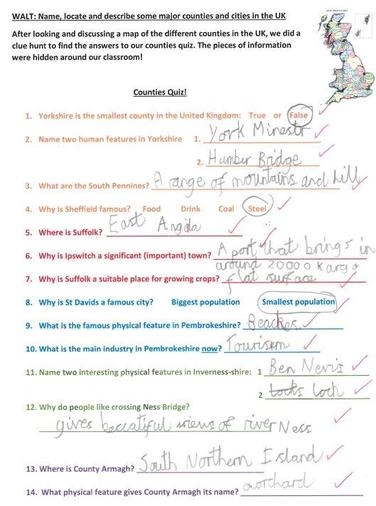 WALT: Name, locate and describe some major counties and cities in the UK
After looking and discussing a map of the different counties in the UK, we did a
clue hunt to find the answers to our counties quiz. The pieces of information
were hidden around our classroom!
Counties Quiz!
1. Yorkshire is the smallest county in the United Kingdom: True or False
2. Name two human features in Yorkshire 1. York Minestr
2. Humber Bridge
3. What are the South Pennines? A range of mountains and hill
4. Why is Sheffield famous? Food Drink Coal Steel
5. Where is Suffolk? East Anglia
6. Why is Ipswitch a significant (important) town? A port that brings in
around 20000 Kargo
7. Why is Suffolk a suitable place for growing crops? flat surface
8. Why is St Davids a famous city? Biggest population Smallest population
9. What is the famous physical feature in Pembrokeshire? Beaches
10. What is the main industry in Pembrokeshire now? Tourism
11. Name two interesting physical features in Inverness-shire: 1 Ben Nevis
2 Loch
12. Why do people like crossing Ness Bridge?
gives beautiful views of river Ness
13. Where is County Armagh? South Northern Island
14. What physical feature gives County Armagh its name? orchard